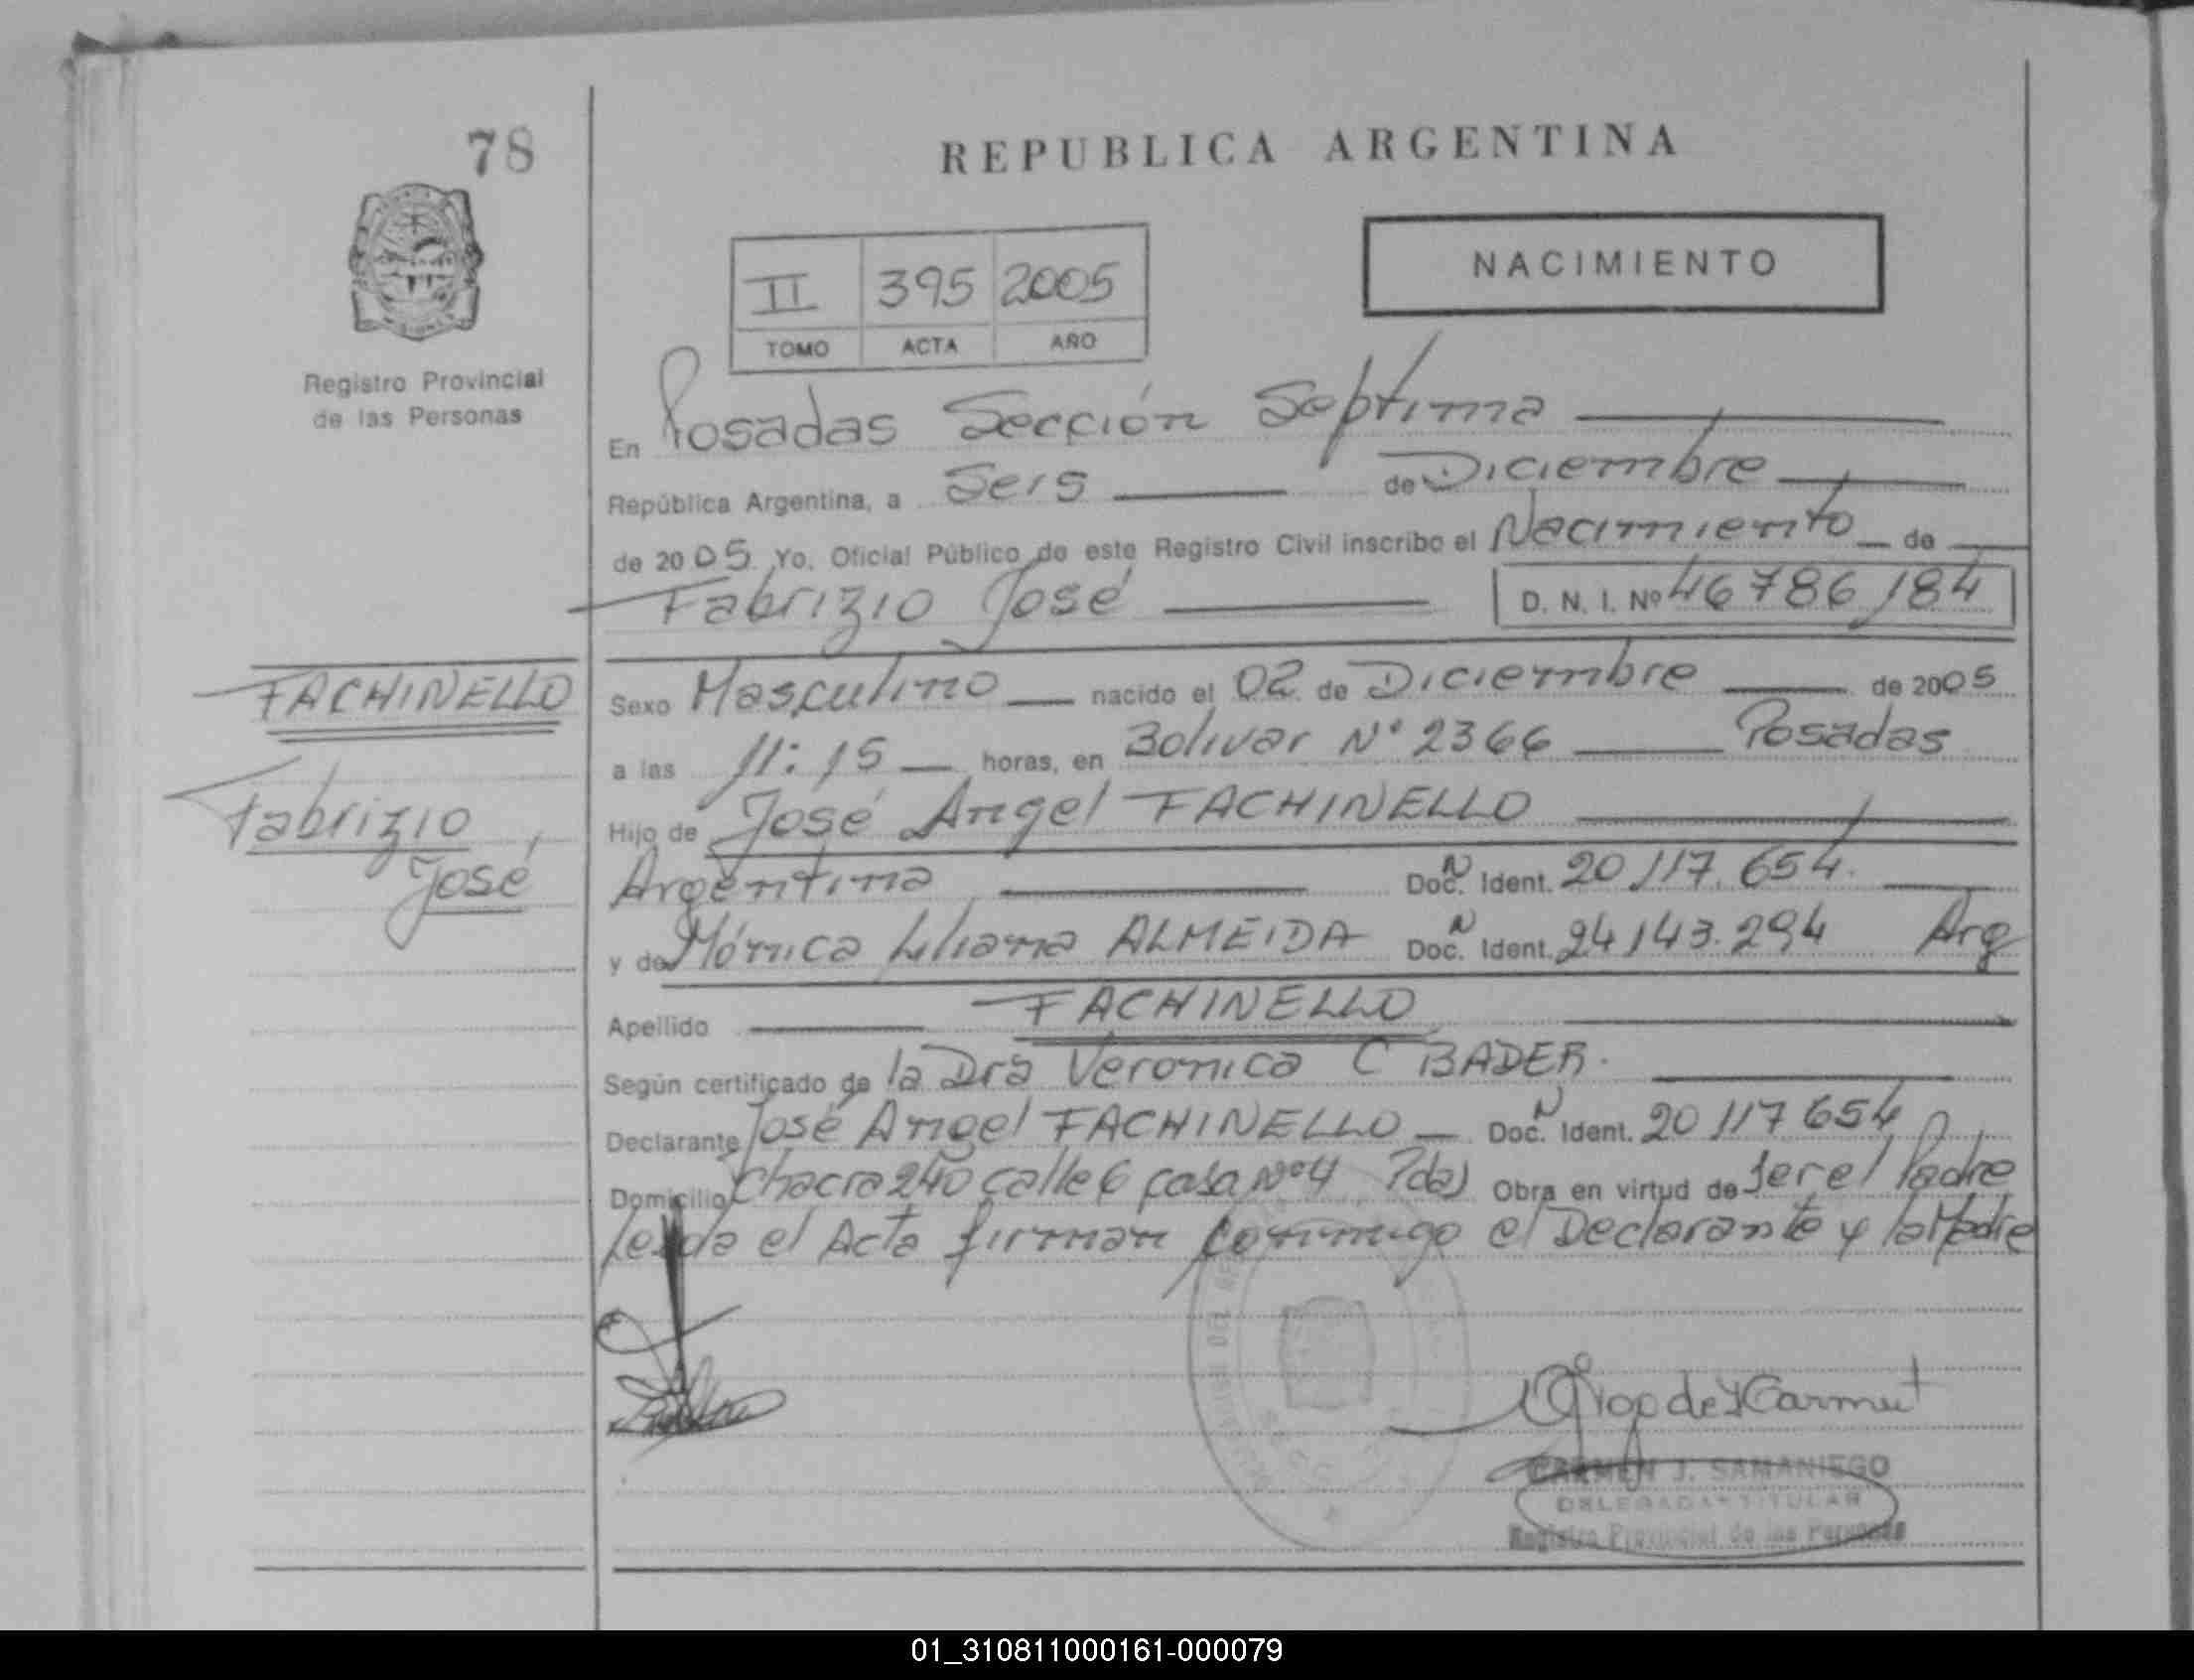 78
REPUBLICA ARGENTINA
NACIMIENTO
II 395 2005
TOMO ACTA AÑO
Registro Provincial
de las Personas
En Posadas Sección Septima
República Argentina, a Seis de Diciembre
de 2005 Yo, Oficial Público de este Registro Civil inscribo el Nacimiento de
Fabrizio José D. N. I. Nº 46786184
FACHINELLO
Fabrizio
José
Sexo Masculino nacido el 02 de Diciembre de 2005
a las 11:15 horas, en Bolivar Nº 2366 Posadas
Hijo de José Angel FACHINELLO
Argentina Doc. N Ident. 20117.654.
y de Mónica Liliana ALMEIDA Doc. N Ident. 24143.294 Arg
Apellido FACHINELLO
Según certificado de la Dra Veronica C BADER.
Declarante José Angel FACHINELLO Doc. N Ident. 20117654
Domicilio Chacra 240 calle 6 casa Nº 4 Pdas Obra en virtud de ser el Padre
Leida el Acta firman conmigo el Declarante y la Madre
CARMEN J. SAMANIEGO
DELEGADA TITULAR
Registro Provincial de las Personas
01_310811000161-000079